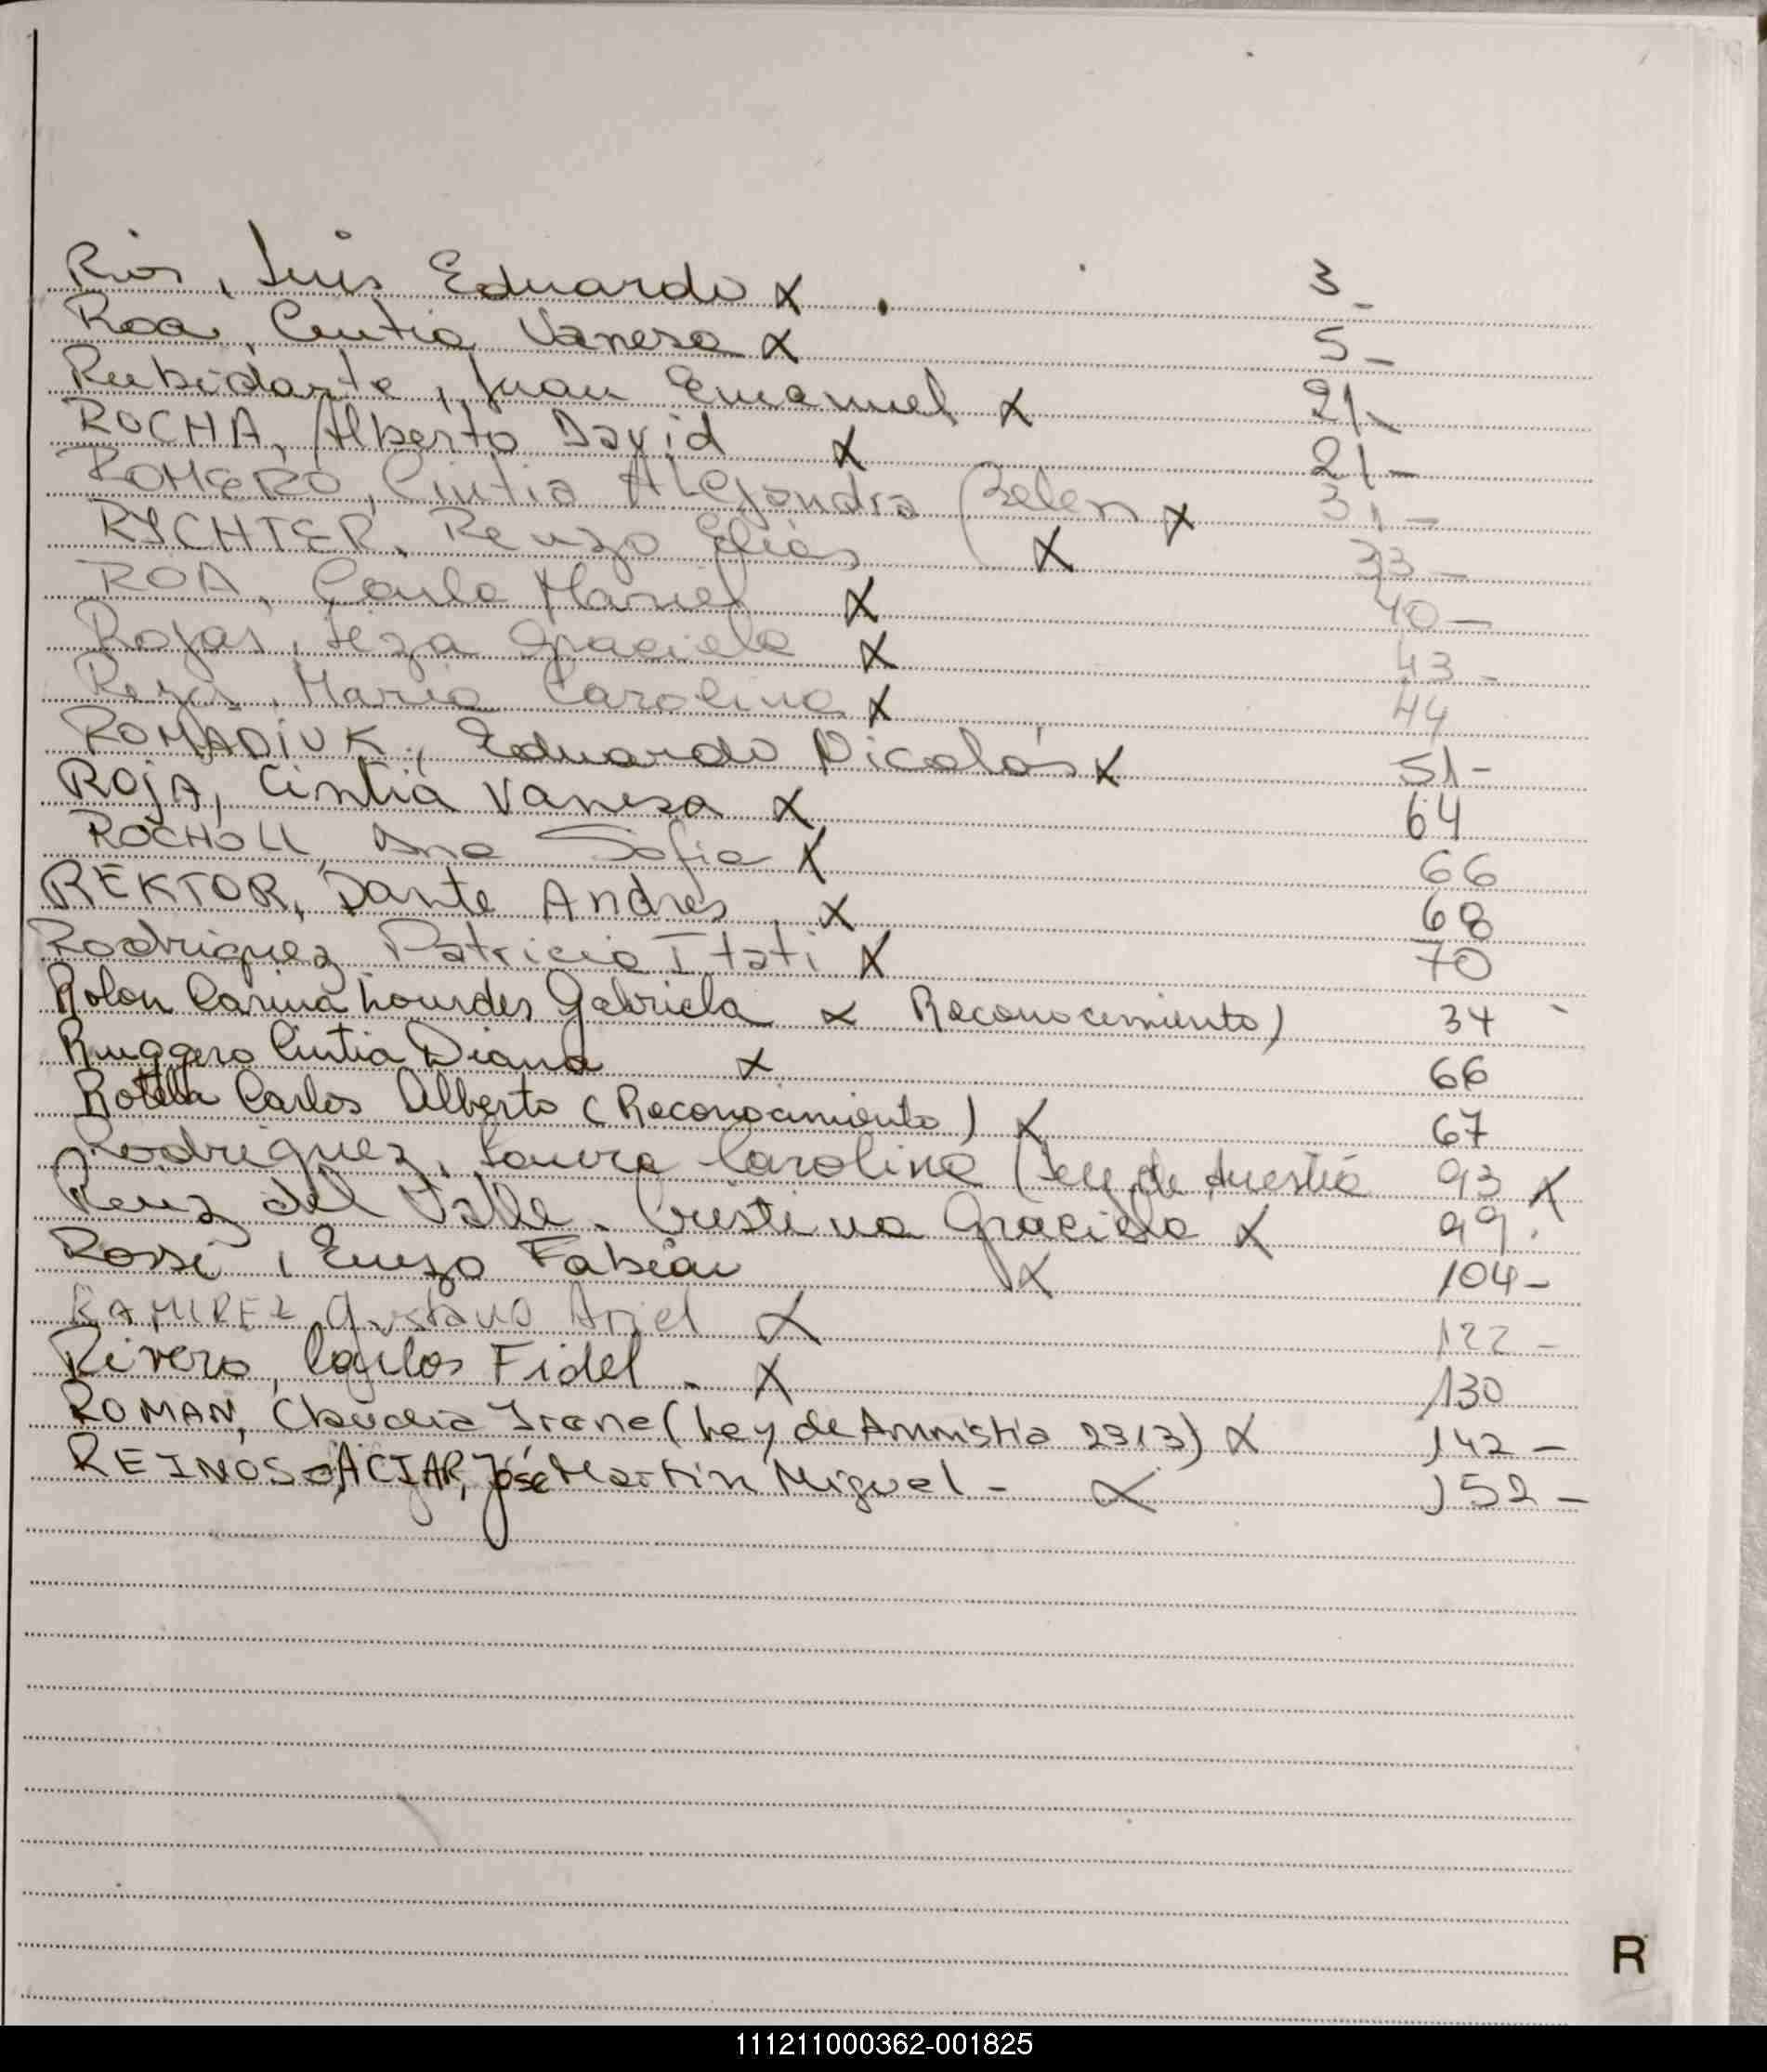 Rios, Luis Eduardo x . 3-
Roa, Cintia Vanesa x 5-
Rubidarte, Juan Emanuel x 21-
ROCHA, Alberto David x 21-
ROMERO, Cintia Alejandra Belen x 31-
RYCHTER, Renzo Elías x 33-
ROA, Carla Mariel x 40-
Rojas, Liza Graciela x 43-
Reyes, María Carolina x 44
ROMADIUK, Eduardo Nicolás x 51-
ROJA, Cintia Vanesa x 64
ROCHOLL, Ana Sofia x 66
REKTOR, Dante Andres x 68
Rodriguez Patricia Itati x 70
Rolon Carina Lourdes Gabriela x Reconocimiento) 34
Ruggero Cintia Diana x 66
Rotella Carlos Alberto (Reconocimiento) x 67
Rodriguez, Laura Carolina (Ley de 93 x
del Valle, Cristina Graciela x 99.
Rossi, Enzo Fabián x 104-
RAMIREZ Gustavo Ariel x 122-
Rivero, Carlos Fidel - x 130
ROMAN, Claudia Irene (Ley de Amnistía 2313) x 142-
REINOSO ACIAR, José Martín Miguel - x 152-
R
111211000362-001825